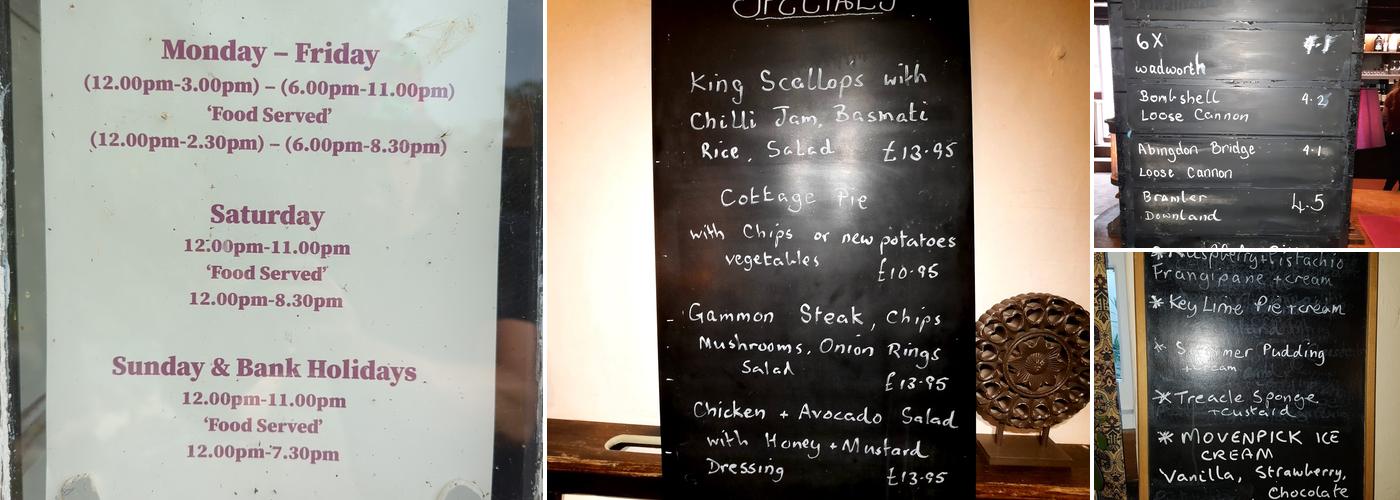 Monday – Friday
(12.00pm-3.00pm) – (6.00pm-11.00pm)
‘Food Served’
(12.00pm-2.30pm) – (6.00pm-8.30pm)
Saturday
12.00pm-11.00pm
‘Food Served’
12.00pm-8.30pm
Sunday & Bank Holidays
12.00pm-11.00pm
‘Food Served’
12.00pm-7.30pm
SPECIALS
King Scallops with
Chilli Jam, Basmati
Rice, Salad £13.95
Cottage Pie
with Chips or new potatoes
vegetables £10.95
Gammon Steak, Chips
Mushrooms, Onion Rings
Salad
£13.95
Chicken + Avocado Salad
with Honey + Mustard
Dressing £13.95
6X
wadworth
Bombshell 4.2
Loose Cannon
Abingdon Bridge 4.1
Loose Cannon
Bramler 4.5
Downland
Raspberry + Pistachio
Frangipane + cream
* Key Lime Pie + cream
* Summer Pudding
+ cream
* Treacle Sponge
+ custard
* MOVENPICK ICE
CREAM
Vanilla, Strawberry,
Chocolate